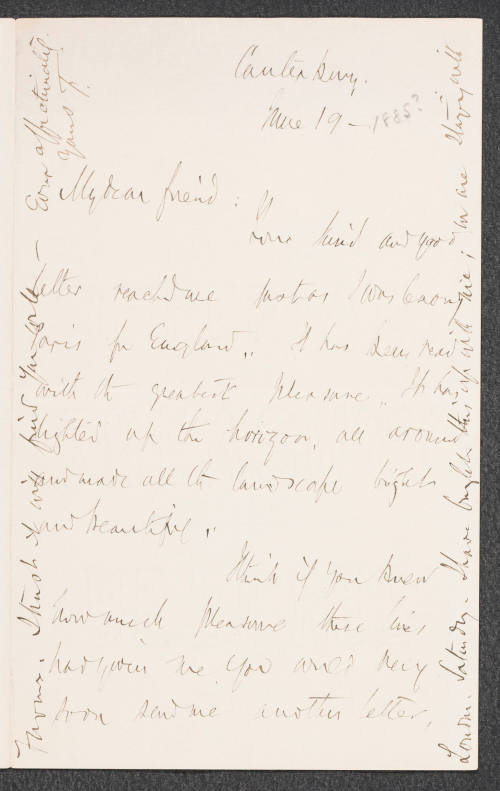 Canterbury.
June 19 — 1885?
My dear friend:
Your kind and good
letter reached me just as I was leaving
Paris for England,, It has been read
with the greatest pleasure,, It has
lighted up the horizon, all around
and made all the landscape bright
and beautiful,,
I think if you knew
how much pleasure these lines
had given me you would very
soon send me another letter,
London. Saturday. I have brought this up with me; we are staying with
I trust it will find you well —
Ever affectionately
Yours T.